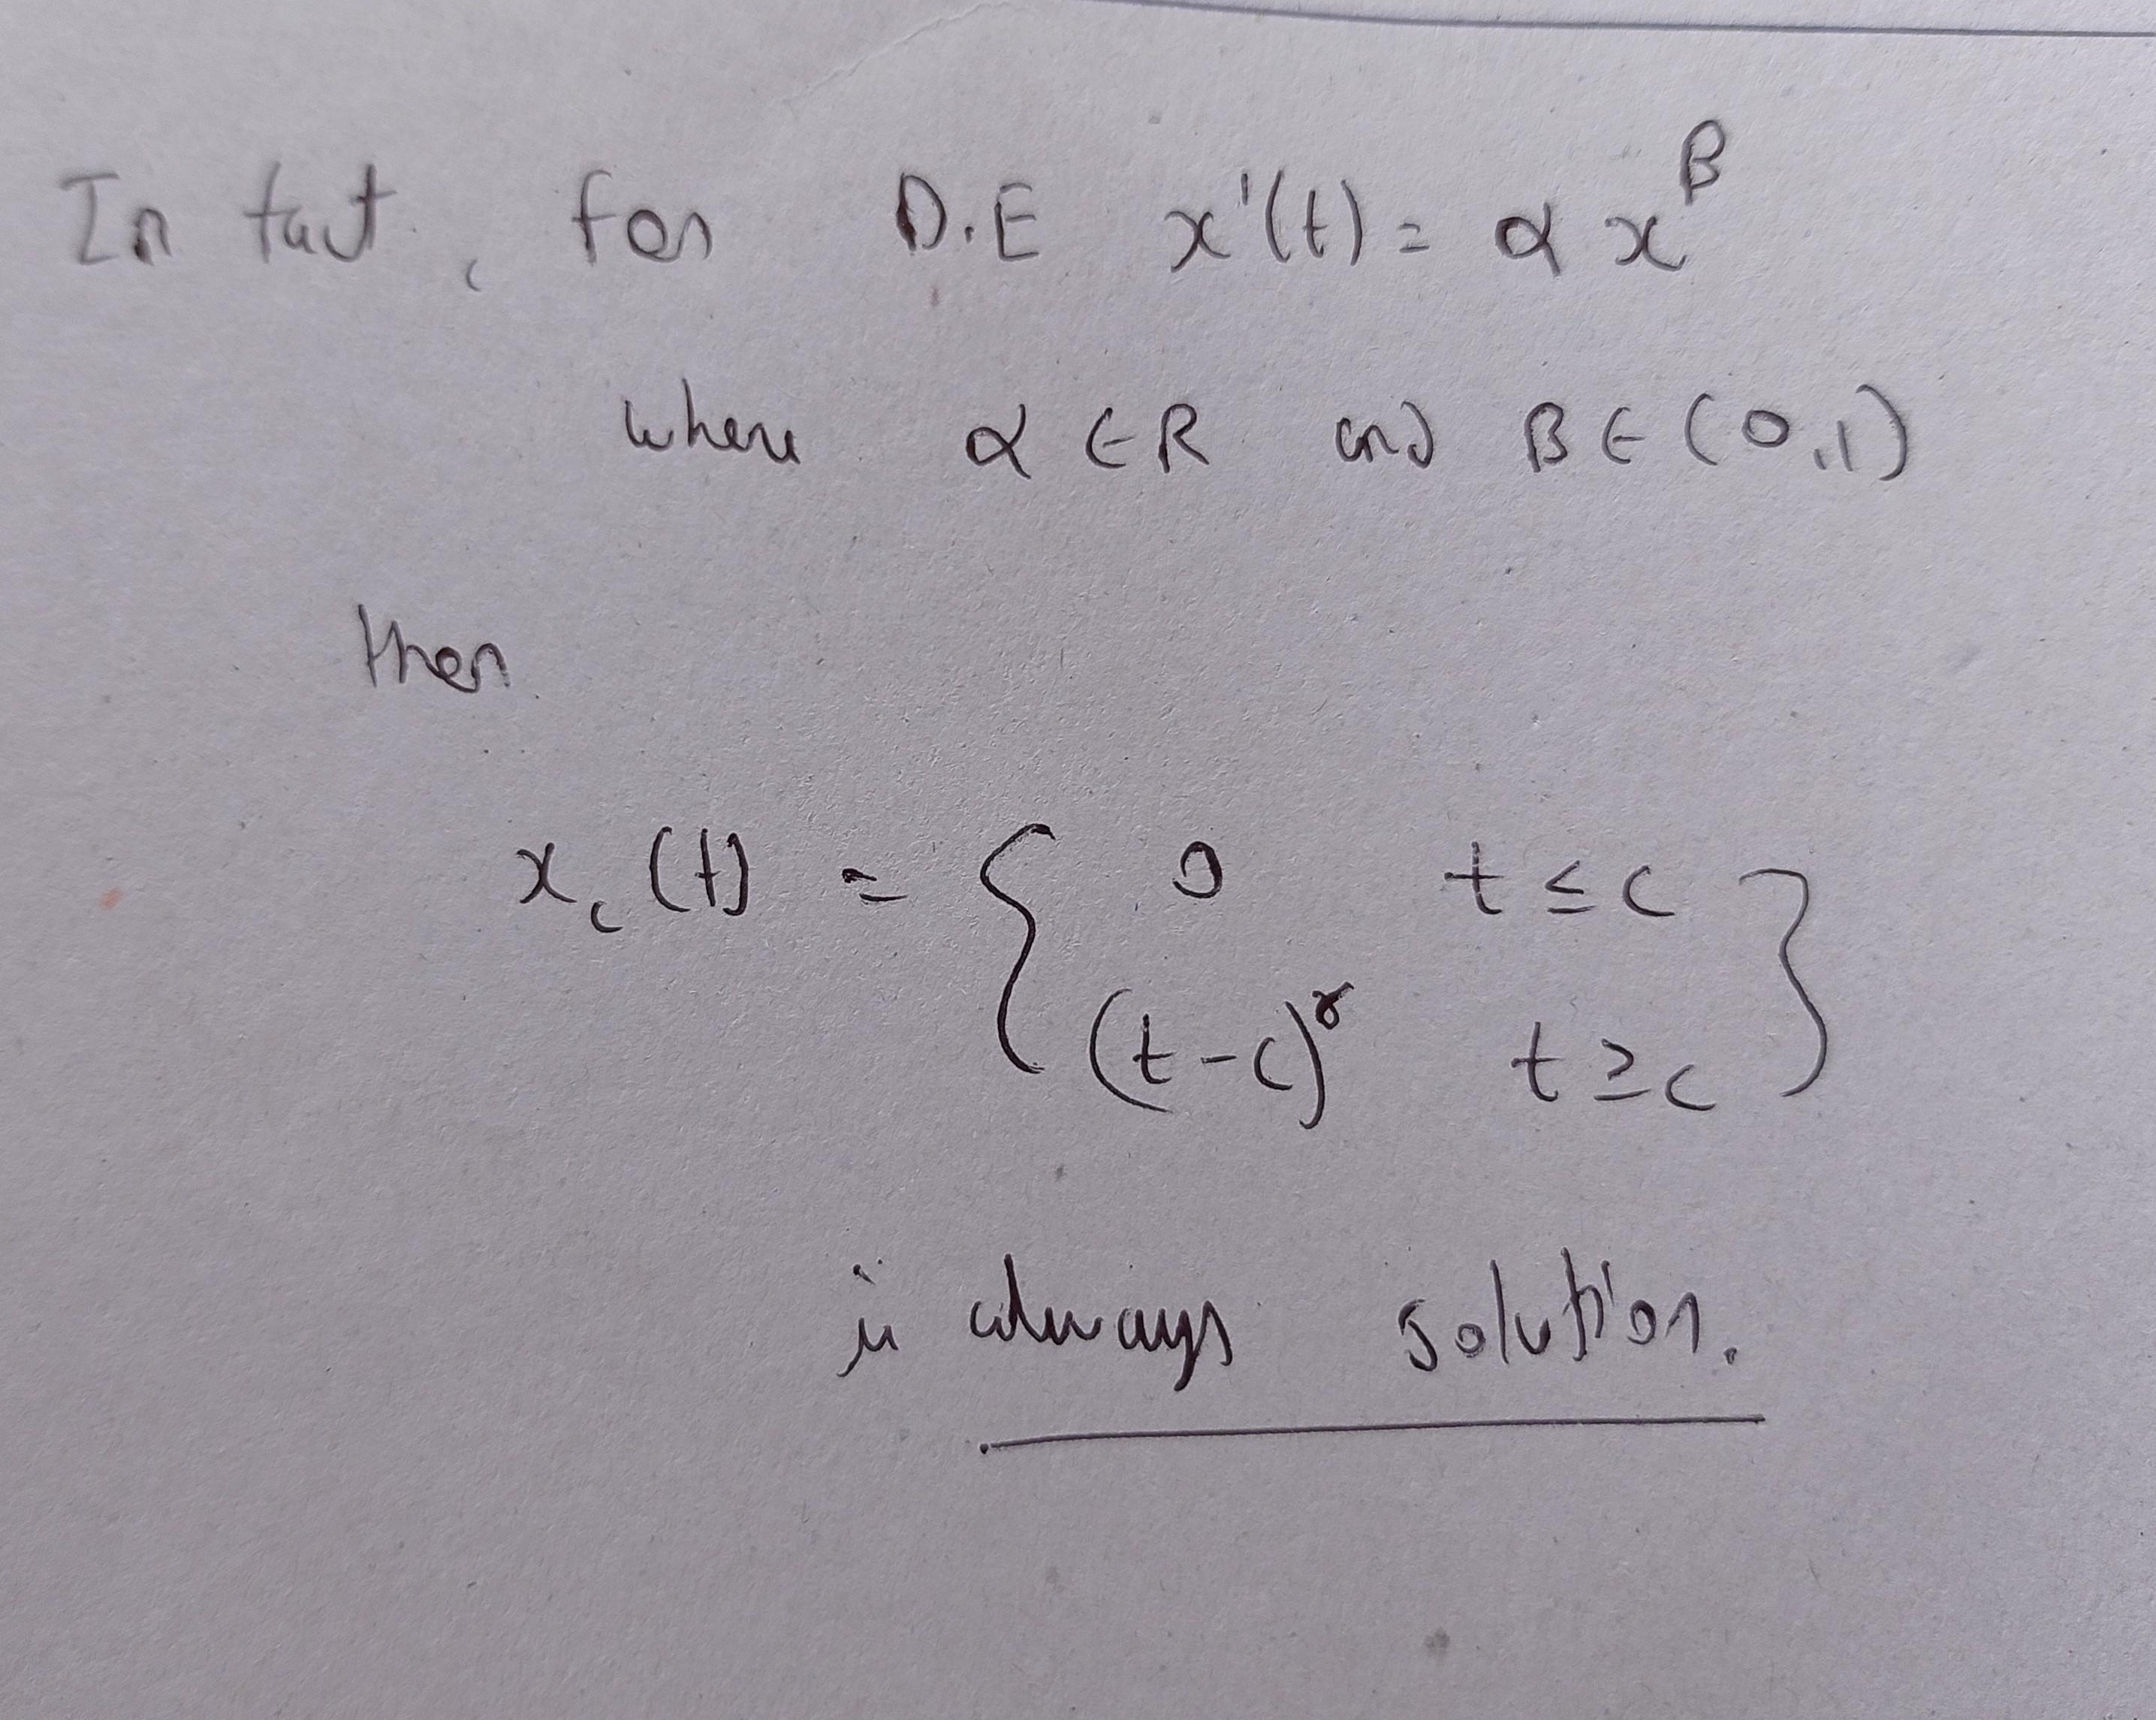 In fact, for D.E x'(t) = α x^β
where α ∈ R and β ∈ (0,1)
then
x_c(t) = { 0 t ≤ c
(t-c)^γ t ≥ c }
is always solution.